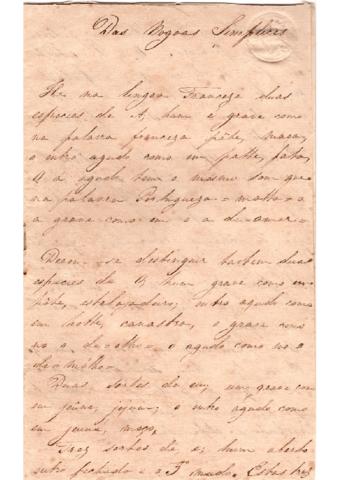 Das Vogaes Simplices
Ha na lingoa Franceza duas
especies de A, hum é grave como
na palavra franceza pâte, massa,
o outro agudo como em patte, pata,
O a agudo tem o mesmo som que
na palavra Portugueza = matto = o
a grave como em o a de amar =
Devem se distinguir tambem duas
especies de O hum grave como em
côte, outro agudo como
em hotte, canastra, o grave como
no o de olho = o agudo como no o
de = mólho =
Duas sortes de eu, um grave como
em jeûne, jejum; o outro agudo como
em jeune, moço,
Trez sortes de e; hum aberto
outro fechado e o 3º mudo. Estas trez